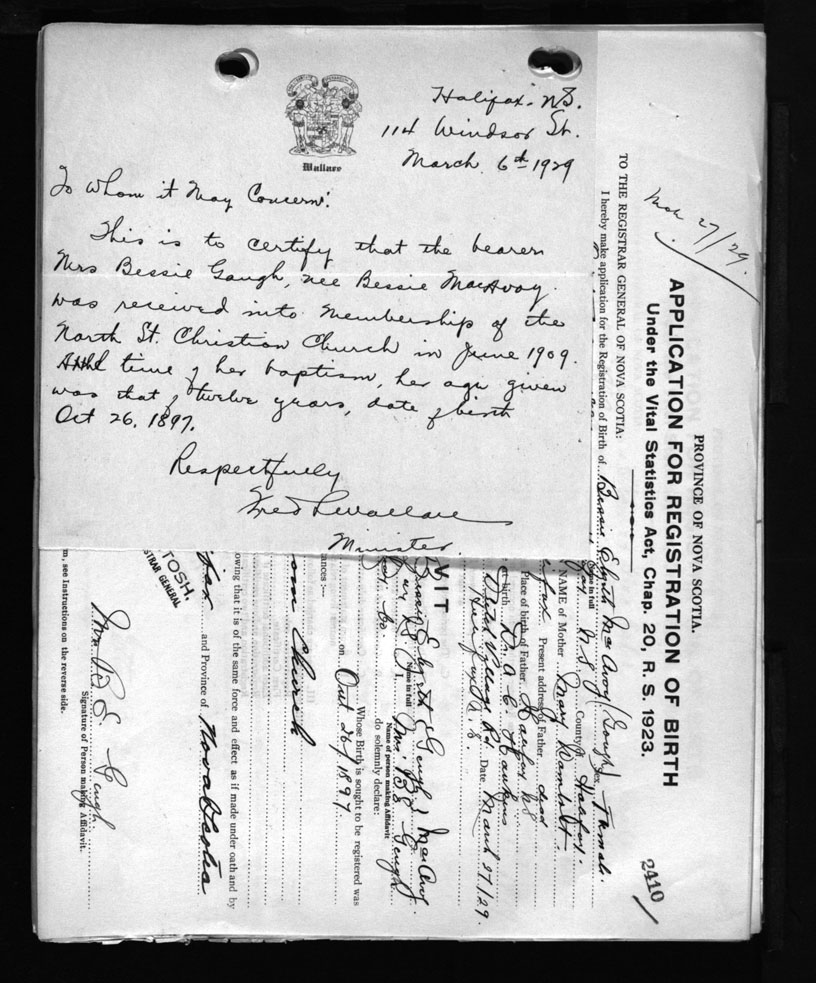 Halifax. N.S.
114 Windsor St.
March. 6th 1929
Wallace
To Whom it May Concern:
This is to certify that the bearer
Mrs Bessie Gough, nee Bessie MacAvoy
was received into membership of the
North St. Christian Church in June 1909.
time of her baptism, her age given
was that of twelve years, date of birth
Oct 26. 1897.
Respectfully
Minister.
Mch 27/29.
2410
PROVINCE OF NOVA SCOTIA.
APPLICATION FOR REGISTRATION OF BIRTH
Under the Vital Statistics Act, Chap. 20, R. S. 1923.
TO THE REGISTRAR GENERAL OF NOVA SCOTIA:
I hereby make application for the Registration of Birth of Bessie Edyth MacAvoy (Gough) Sex Female.
Name in full
N S County Halifax.
NAME of Mother Mary
Present address of Father dead
Place of birth of Father Halifax NS
birth Dr. A C Hawkins
Dutch Village Rd Date March 27/29.
Halifax N. S.
VIT
Name in full
I, Mrs. B E Gough
Name of person making Affidavit
do solemnly declare:
Whose Birth is sought to be registered was
on Oct 26/1897
ances :—
Church
owing that it is of the same force and effect as if made under oath and by
and Province of Nova Scotia
TOSH.
STRAR GENERAL
Mrs. B E Gough
Signature of Person making Affidavit.
m, see Instructions on the reverse side.